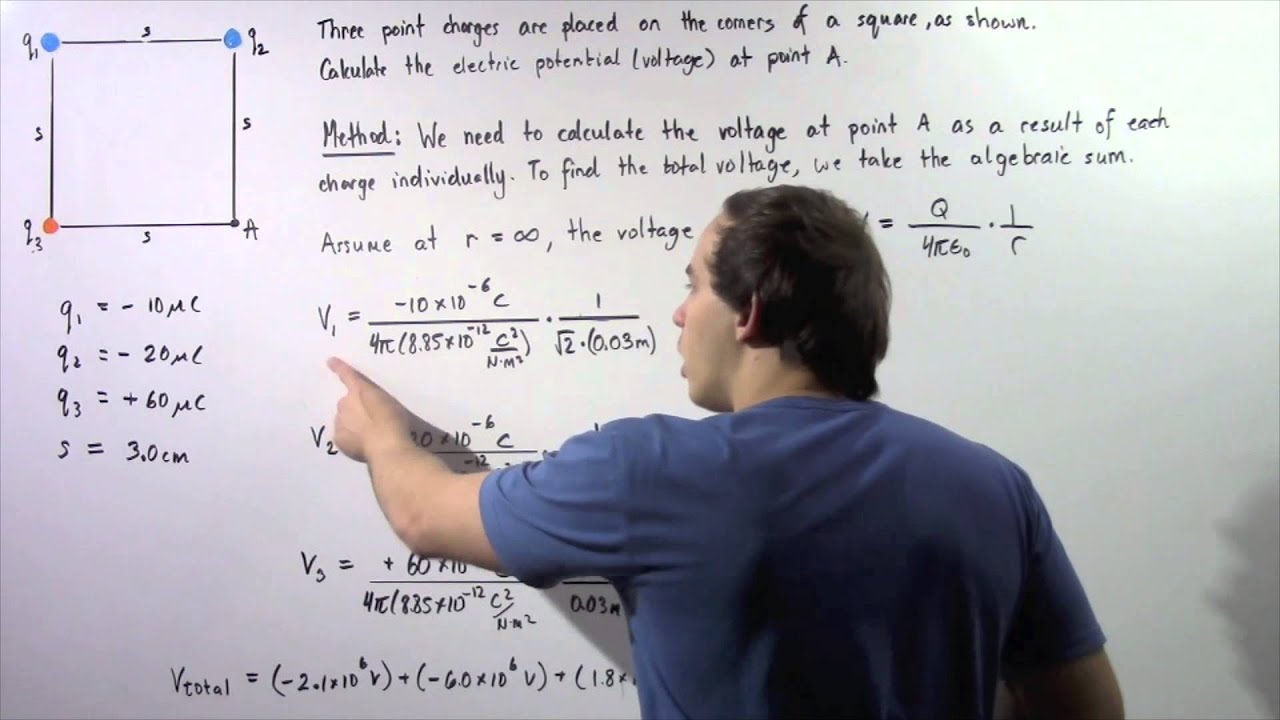 q₁ s q₂
s s
q₃ s A
q₁ = - 10 μC
q₂ = - 20 μC
q₃ = + 60 μC
s = 3.0 cm
Three point charges are placed on the corners of a square, as shown.
Calculate the electric potential (voltage) at point A.
Method: We need to calculate the voltage at point A as a result of each
charge individually. To find the total voltage, we take the algebraic sum.
Assume at r = ∞, the voltage = Q/4πε₀ · 1/r
V₁ = -10×10⁻⁶ C / 4π(8.85×10⁻¹² C²/N·m²) · 1/√2·(0.03m)
V₂ 10⁻⁶ C
V₃ = + 60×10 / 4π(8.85×10⁻¹² C²/N·m²) 0.03m
Vtotal = (-2.1×10⁶ V) + (-6.0×10⁶ V) + (1.8×